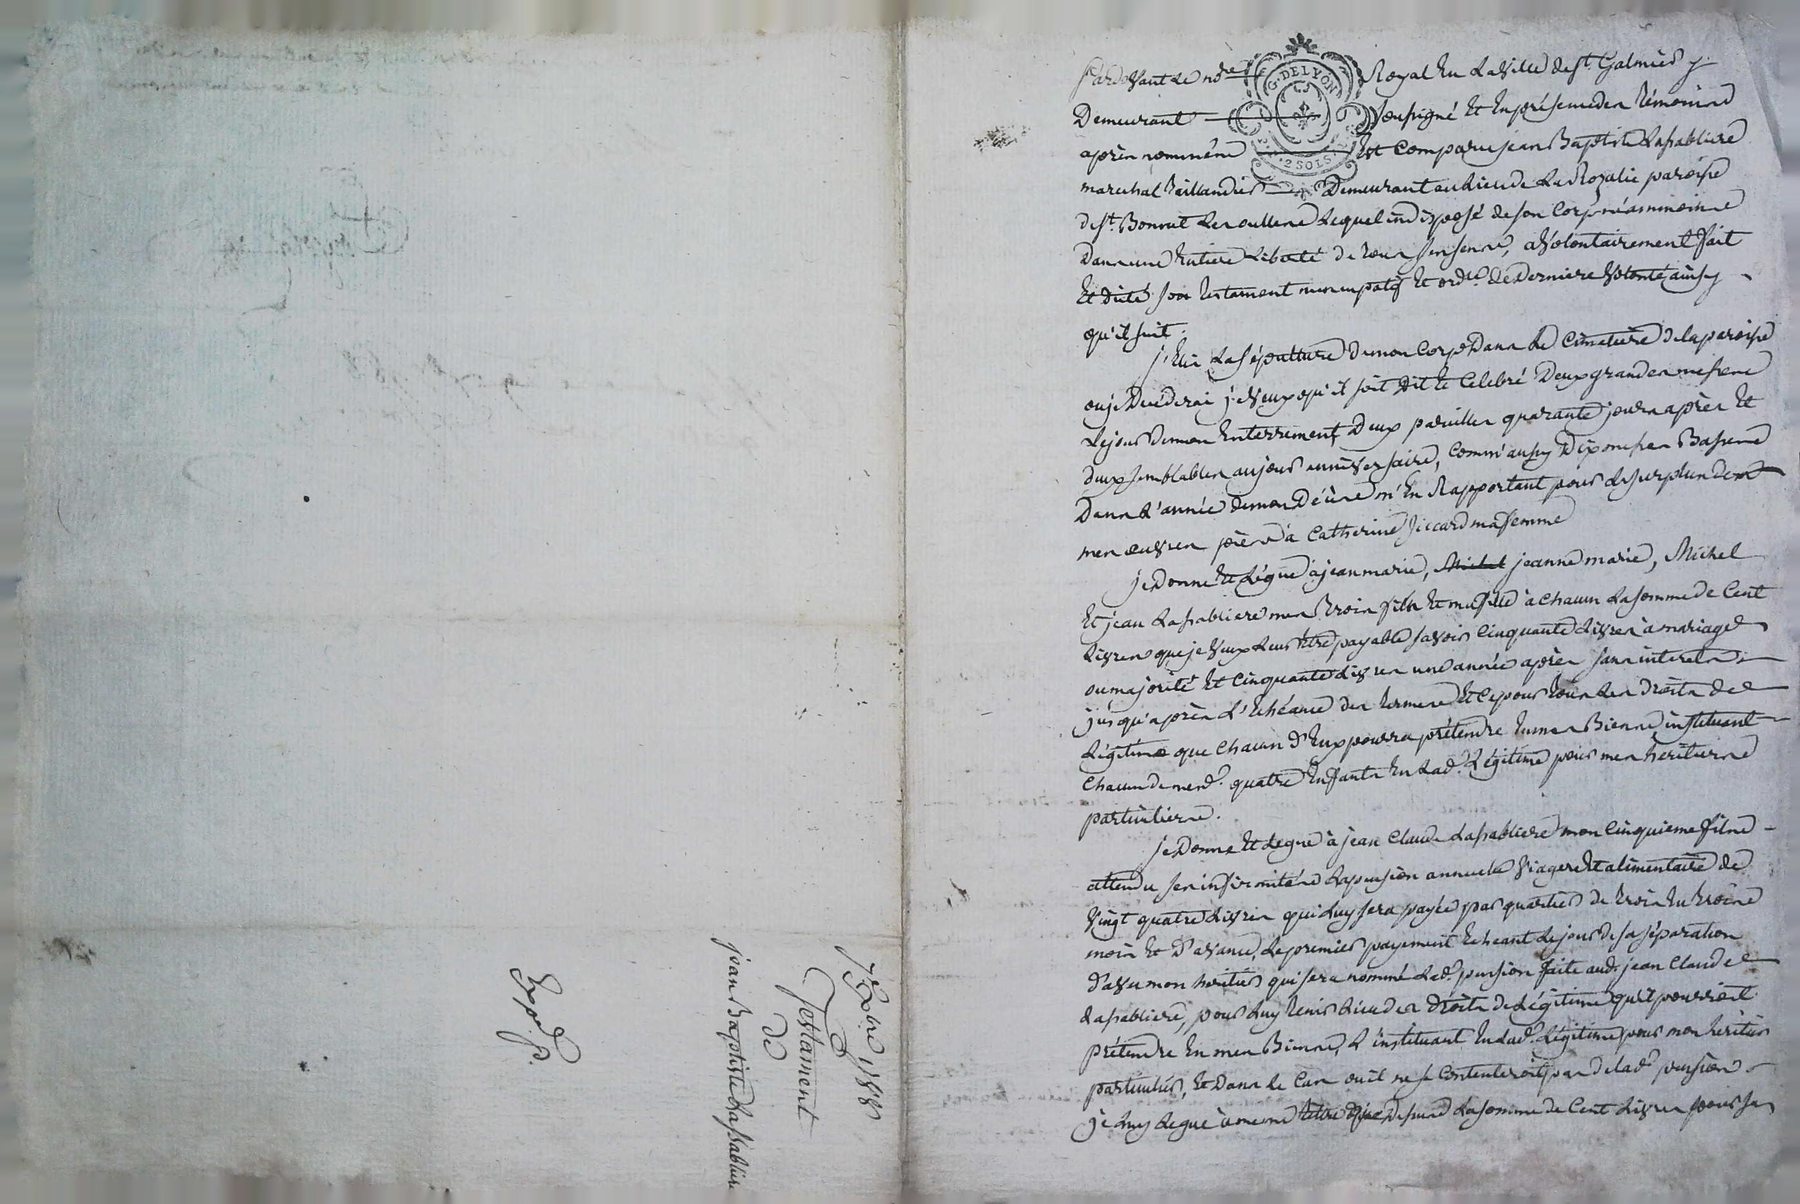 7bre 1788
Testament
De
jean Baptiste Lassabliere
Expé
G. DE LYON
2 SOLS
Pardevant Le nore Royal En La Ville de st. Galmier y
Demeurant soussigné Et En présence des témoins
après nommés Est Comparu jean Baptiste Lassabliere
marechal Taillandier Demeurant au Lieu de La Royalie paroisse
de st. Bonnet Les oulles Lequel indisposé de son Corps néanmoins
Dans une Entiere Liberté de tous ses sens, a Volontairement fait
Et dicté son testament nuncupatif Et ordce. de Derniere Volonté ainsy
qu'il suit.
j'Elis La sépulture de mon Corps Dans Le Cimetiere de la paroisse
ou je Décéderai je Veux qu'il soit dit Et Celebré Deux grandes messes
Le jour de mon Enterrement, Deux pareilles quarante jours après Et
deux semblables au jour anniversaire, Comm'aussy Dix messes Basses
Dans L'année de mon Décès m'En Rapportant pour Le surplus de
mes œuvres pies à Catherine Siccard ma femme
je Donne Et Légue à jean marie, jeanne marie, Michel
Et jean Lassabliere mes trois fils Et ma fille à Chacun La somme de Cent
Livres que je Veux Leur Etre payable savoir Cinquante Livres à mariage
ou majorité Et Cinquante Livres une année après sans interets
jusqu'après L'Echéance des termes Et Ce pour tous Les Droits de
Légitime que Chacun d'Eux pourra prétendre En mes Biens, instituant
Chacun de mesd. quatre Enfants En Lad. Légitime pour mes héritiers
particuliers.
je Donne Et Legue à jean Claude Lassabliere mon Cinquieme fils
attendu ses infirmités La pension annuelle Viagere Et alimentaire de
Vingt quatre Livres qui Luy sera payée par quartier de trois En trois
mois Et D'avance, Le premier payement Echeant Le jour de sa séparation
d'avec mon héritier qui sera nommé Lad. pension faite aud. jean Claude
Lassabliere, pour Luy tenir Lieu des Droits de Légitime qu'il pourroit
prétendre En mes Biens, L'instituant En Lad. Légitime pour mon héritier
particulier, Et Dans Le Cas ou il ne se Contenteroit pas de Lad. pension
je Luy Legue à meme titre que Dessus La somme de Cent Livres pour ses